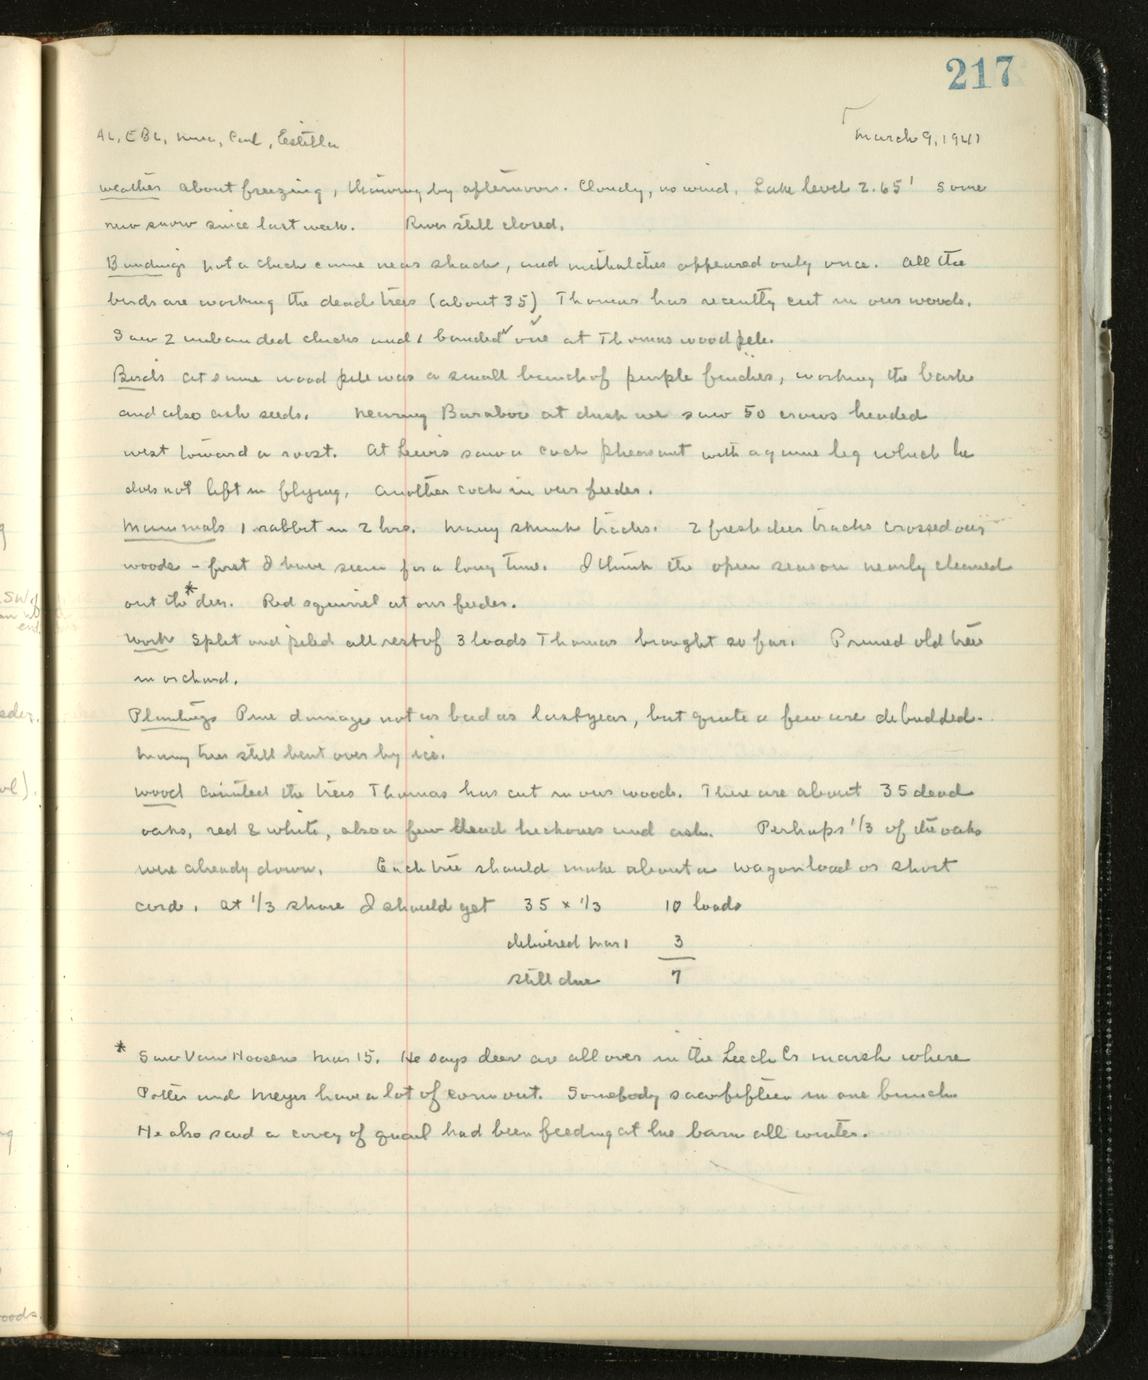 217
AL, EBL, Nina, Carl, Estella
March 9, 1941
Weather about freezing, thawing by afternoon. Cloudy, no wind. Lake level 2.65' Some
new snow since last week. River still closed.
Bandings Not a chick came near shack, and nuthatches appeared only once. All the
birds are working the dead trees (about 35) Thomas has recently cut in our woods.
Saw 2 unbanded chicks and 1 banded ✓ one ✓ at Thomas wood pile.
Birds At same wood pile was a small bunch of purple finches, working the bark
and also ash seeds. Nearing Baraboo at dusk we saw 50 crows headed
west toward a roost. At Lewis saw a cock pheasant with a game leg which he
does not lift in flying. Another cock in our feeder.
Mammals 1 rabbit in 2 hrs. Many skunk tracks. 2 fresh deer tracks crossed our
woods - first I have seen for a long time. I think the open season nearly cleaned
out the * deer. Red squirrel at our feeder.
Work Split and piled all rest of 3 loads Thomas brought so far. Pruned old tree
in orchard.
Plantings Pine damage not as bad as last year, but quite a few are debudded.
Many trees still bent over by ice.
Wood Counted the trees Thomas has cut in our woods. There are about 35 dead
oaks, red & white, also a few dead hickories and ash. Perhaps 1/3 of the oaks
were already down. Each tree should make about a wagonload or short
cord. At 1/3 share I should get 35 x 1/3 10 loads
delivered Mar 1 3
still due 7
* Saw Van Hoosens Mar 15. He says deer are all over in the Leech Cr marsh where
Potter and Meyer have a lot of corn out. Somebody saw fifteen in one bunch
He also said a covey of quail had been feeding at his barn all winter.